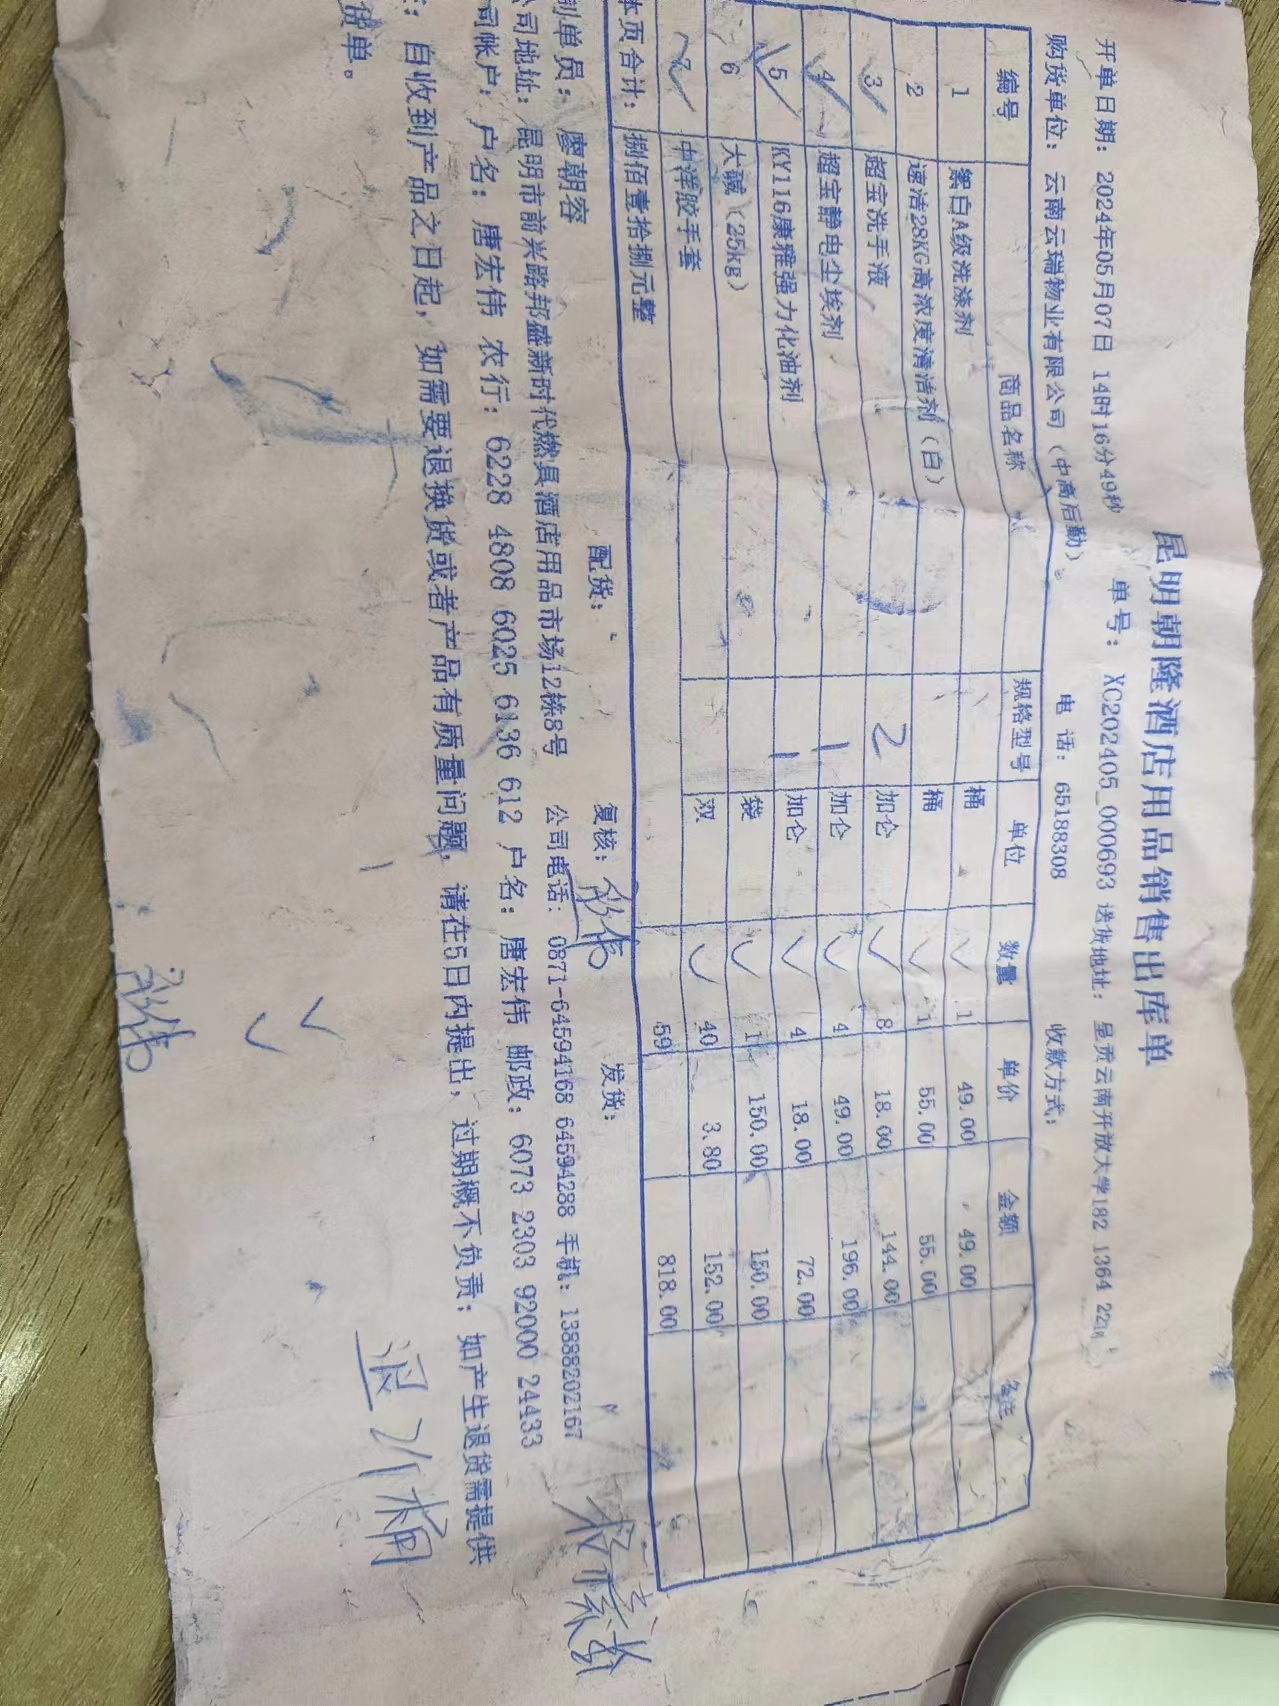 昆明朝隆酒店用品销售出库单
开单日期：2024年05月07日 14时16分49秒 单号：XC202405_000693 送货地址：呈贡云南开放大学182 1364 22
购货单位：云南云瑞物业有限公司（中高后勤） 电 话：65188308 收款方式：
编号 商品名称 规格型号 单位 数量 单价 金额 备注
1 絮白A级洗涤剂 桶 1 49.00 49.00
2 速洁28KG高浓度清洁剂（白） 桶 1 55.00 55.00
3 超宝洗手液 2 加仑 8 18.00 144.00
4 超宝静电尘埃剂 1 加仑 4 49.00 196.00
5 KY116康雅强力化油剂 1 加仑 4 18.00 72.00
6 大碱（25kg） 袋 1 150.00 150.00
7 中洋胶手套 双 40 3.80 152.00
本页合计：捌佰壹拾捌元整 59 818.00
制单员：廖朝容 配货： 复核： 发货：
公司地址：昆明市前兴路邦盛新时代燃具酒店用品市场12栋8号 公司电话：0871-64594168 64594288 手机：13888202167
司帐户：户名：唐宏伟 农行：6228 4808 6025 6136 612 户名：唐宏伟 邮政：6073 2303 92000 24433
：自收到产品之日起，如需要退换货或者产品有质量问题，请在5日内提出，过期概不负责；如产生退货需提供
货单。
退
桶